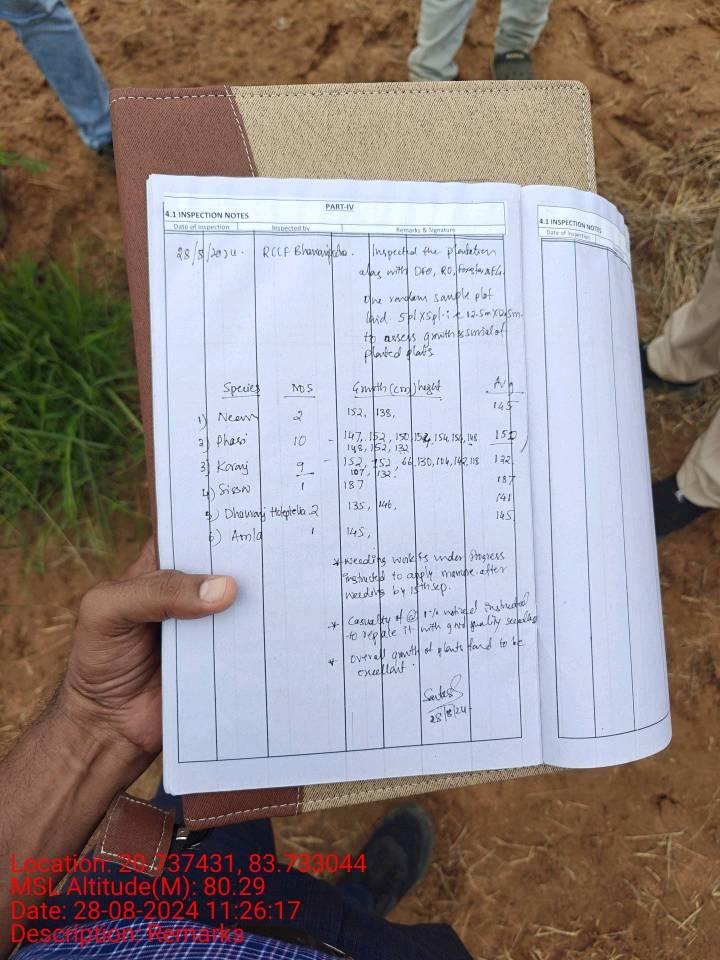 PART-IV
4.1 INSPECTION NOTES
Date of Inspection Inspected by Remarks & Signature
28/8/2024. RCCF Bhawanipatna. Inspected the plantation
along with DFO, RO, Forester & FG.
One random sample plot
laid. 5pl X 5pl. i.e 12.5m X 12.5m.
to assess growth & survival of
planted plants
Species NOS Growth (cm) height Avg
1) Neem 2 152, 138, 145
2) Phasi 10 - 147, 152, 150, 154, 154, 148 152
148, 152, 132
3) Karanj 9 - 152, 152, 66, 130, 104, 142, 118 122
107, 132.
4) Sissoo 1 187 187
5) Dhauranj Holoptelia 2 135, 146, 141
6) Amla 1 145, 145
* Weeding work is under Progress
instructed to apply manure after
weeding by 15th Sep.
* Casualty of @ 1% noticed instructed
to replace it with good quality seedling
* Overall growth of plants found to be
excellent.
28/8/24
4.1 INSPECTION NOTES
Date of Inspection
Location: 20.737431, 83.733044
MSL Altitude(M): 80.29
Date: 28-08-2024 11:26:17
Description: Remarks